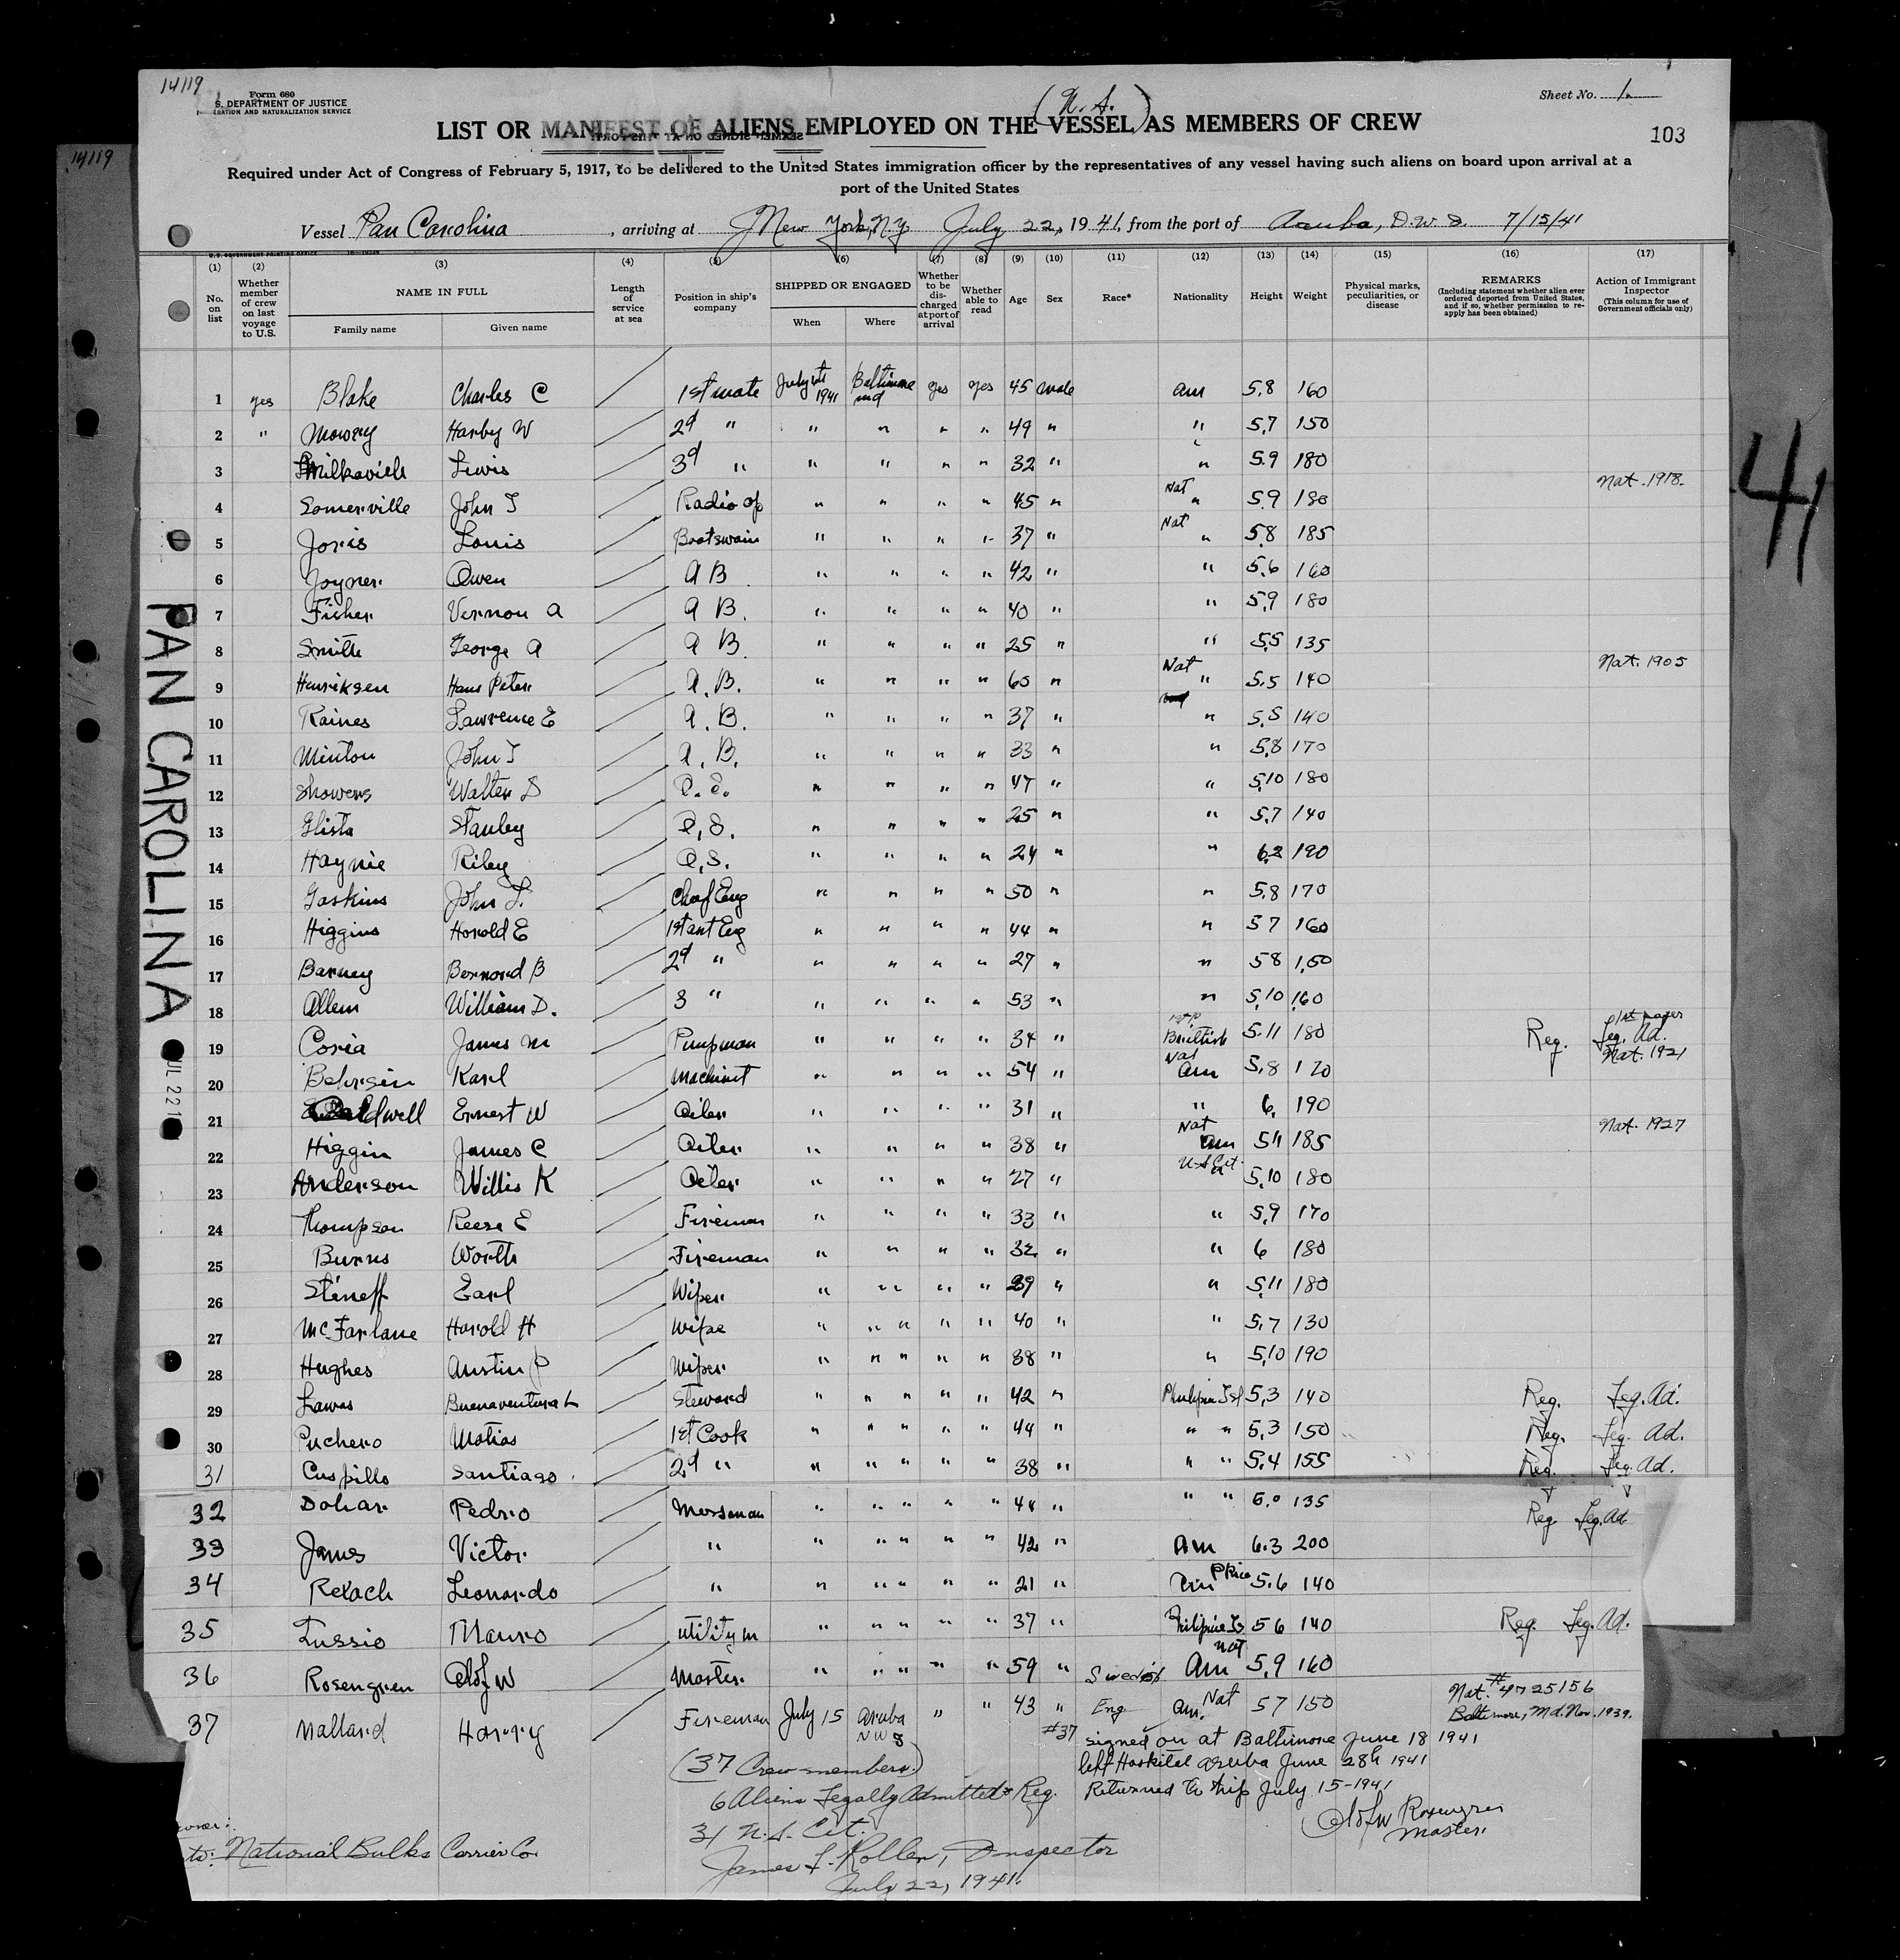 14119
Form 680
S. DEPARTMENT OF JUSTICE
RATION AND NATURALIZATION SERVICE
Sheet No. 1
(U. S.)
LIST OR MANIFEST OF ALIENS EMPLOYED ON THE VESSEL AS MEMBERS OF CREW
103
14119
Required under Act of Congress of February 5, 1917, to be delivered to the United States immigration officer by the representatives of any vessel having such aliens on board upon arrival at a
port of the United States
Vessel Pan Carolina, arriving at New York, N.Y. July 22, 1941, from the port of Aruba, D.W.I. 7/15/41
(1) (2) (3) (4) (5) (6) (7) (8) (9) (10) (11) (12) (13) (14) (15) (16) (17)
No. on list
Whether member of crew on last voyage to U.S.
NAME IN FULL
Family name Given name
Length of service at sea
Position in ship's company
SHIPPED OR ENGAGED
When Where
Whether to be discharged at port of arrival
Whether able to read
Age Sex Race* Nationality Height Weight
Physical marks, peculiarities, or disease
REMARKS
(Including statement whether alien ever ordered deported from United States, and if so, whether permission to reapply has been obtained)
Action of Immigrant Inspector
(This column for use of Government officials only)
1 yes Blake Charles C 1st mate July 1941 Baltimore md yes yes 45 male am 5.8 160
2 " Mowrey Harby W 2d " " " " " 49 " " 5.7 150
3 Milkovich Lewis 3d " " " " " 32 " " 5.9 180
4 Somerville John T Radio Op " " " " 45 " Nat " 5.9 180 Nat. 1918.
5 Joris Louis Boatswain " " " " 37 " Nat " 5.8 185
6 Joyner Owen A B " " " " 42 " " 5.6 160
7 Fisher Vernon A A B. " " " " 40 " " 5.9 180
8 Smith George A A B " " " " 25 " " 5.5 135
9 Henriksen Hans Peter A. B. " " " " 60 " Nat " 5.5 140 Nat. 1905
10 Raines Lawrence E A. B. " " " " 37 " " 5.5 140
11 Minton John T A. B. " " " " 33 " " 5.8 170
12 Showers Walter S O. S. " " " " 47 " " 5.10 180
13 Glista Stanley O. S. " " " " 25 " " 5.7 140
14 Haynie Riley O. S. " " " " 24 " " 6.2 190
15 Gaskins John T. Chief Eng " " " " 50 " " 5.8 170
16 Higgins Harold E 1st ast Eng " " " " 44 " " 5 7 160
17 Barney Bernard B 2d " " " " " 27 " " 5 8 150
18 Allen William D. 3 " " " " " 53 " " 5.10 160
19 Coria James M Pumpman " " " " 34 " British 5.11 180 Reg. 1st paper Leg. Ad.
20 Behrsin Karl Machinist " " " " 54 " Nat am 5.8 120 Nat. 1921
21 Caldwell Ernest W Oiler " " " " 31 " " 6. 190
22 Higgin James C Oiler " " " " 38 " Nat am 5 11 185 Nat. 1927
23 Anderson Willis K Oiler " " " " 27 " U.S. Cit. 5.10 180
24 Thompson Reese E Fireman " " " " 33 " " 5.9 170
25 Burns Worth Fireman " " " " 32 " " 6 180
26 Steneff Earl Wiper " " " " 29 " " 5.11 180
27 McFarlane Harold H Wipe " " " " " 40 " " 5.7 130
28 Hughes Austin P Wiper " " " " " 38 " " 5.10 190
29 Lawas Buenaventura L Steward " " " " " 42 " Philipin Isl 5.3 140 Reg. Leg. Ad.
30 Puchero Matias 1st Cook " " " " " 44 " " " 5.3 150 Reg. Leg. Ad.
31 Cuspillo Santiago 2d " " " " " " 38 " " " 5.4 155 Reg. Leg. Ad.
32 Dohar Pedro Messman " " " " " 44 " " " 5.0 135 Reg Leg. Ad
33 James Victor " " " " " " 42 " Am 6.3 200
34 Rexach Leonardo " " " " " " 21 " P Rico 5.6 140
35 Lussio Mauro Utility m " " " " " 37 " Philipine Is 5 6 140 Reg. Leg. Ad.
36 Rosengren Olof W Master " " " " " 59 " Swedish Nat Am 5.9 160
37 Mallard Harry Fireman July 15 Aruba NWI " " 43 " Eng Am. Nat 5 7 150 Nat. # 4725156 Baltimore, Md. Nov. 1939.
#37 signed on at Baltimore June 18 1941
left Hospital Aruba June 28th 1941
Returned to ship July 15-1941
Olof W Rosengren
Master.
(37 Crew members.)
6 Aliens Legally Admitted & Reg.
31 U.S. Cit.
James L. Roller, Inspector
July 22, 1941.
to: National Bulks Carrier Co.
PAN CAROLINA
41